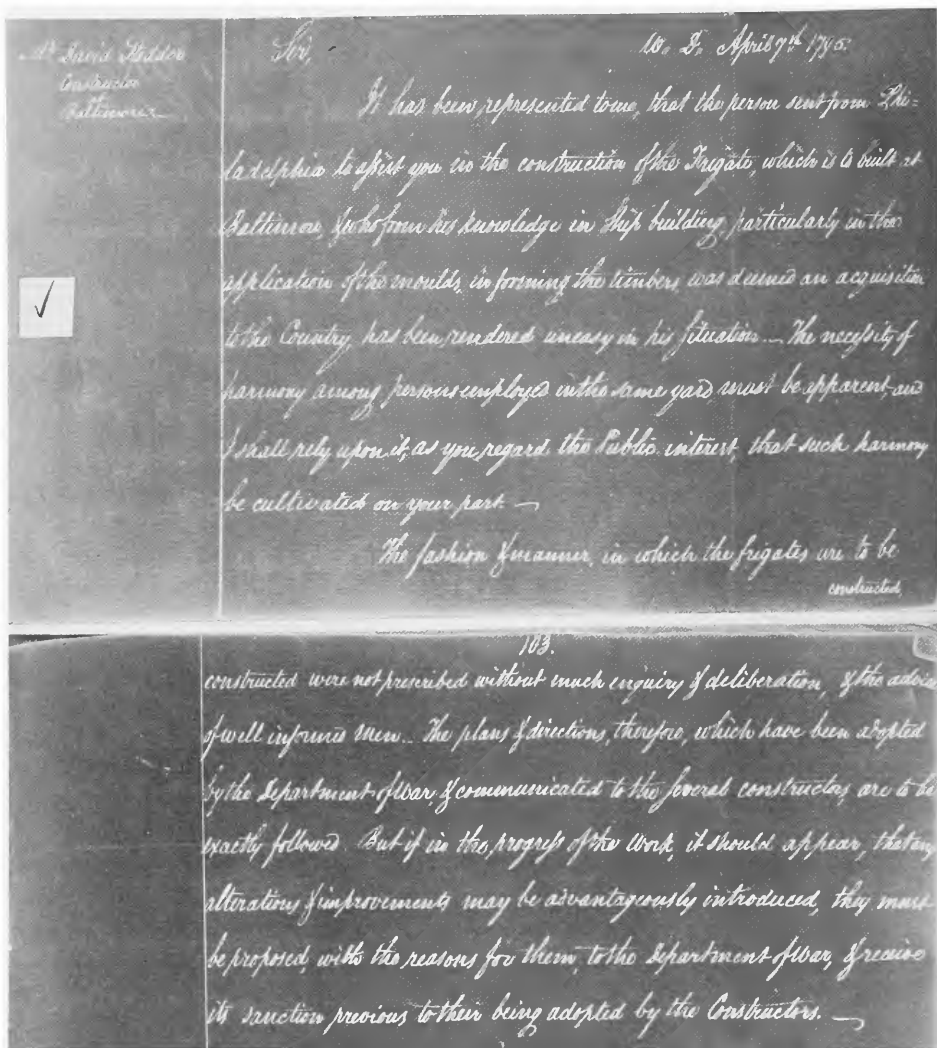 Mr. David Stodder
Constructor
Baltimore
Sir,
W. D. April 7th 1795.
It has been represented to me, that the person sent from Phi=
ladelphia to assist you in the construction of the Frigate, which is to built at
Baltimore, & who from his knowledge in Ship building, particularly in the
application of the moulds, in forming the timbers, was deemed an acquisition
to the Country, has been rendered uneasy in his situation — The necessity of
harmony among persons employed in the same yard must be apparent, and
I shall rely upon it, as you regard the Public interest, that such harmony
be cultivated on your part. —
The fashion & manner, in which the frigates are to be
constructed,
103.
constructed were not prescribed without much enquiry & deliberation, & the advice
of well informed men — The plans & directions, therefore, which have been adopted
by the Department of War, & communicated to the several constructors, are to be
exactly followed. But if in the progress of the work, it should appear, that any
alterations & improvements may be advantageously introduced, they must
be proposed, with the reasons for them, to the Department of War, & receive
its sanction previous to their being adopted by the Constructors. —